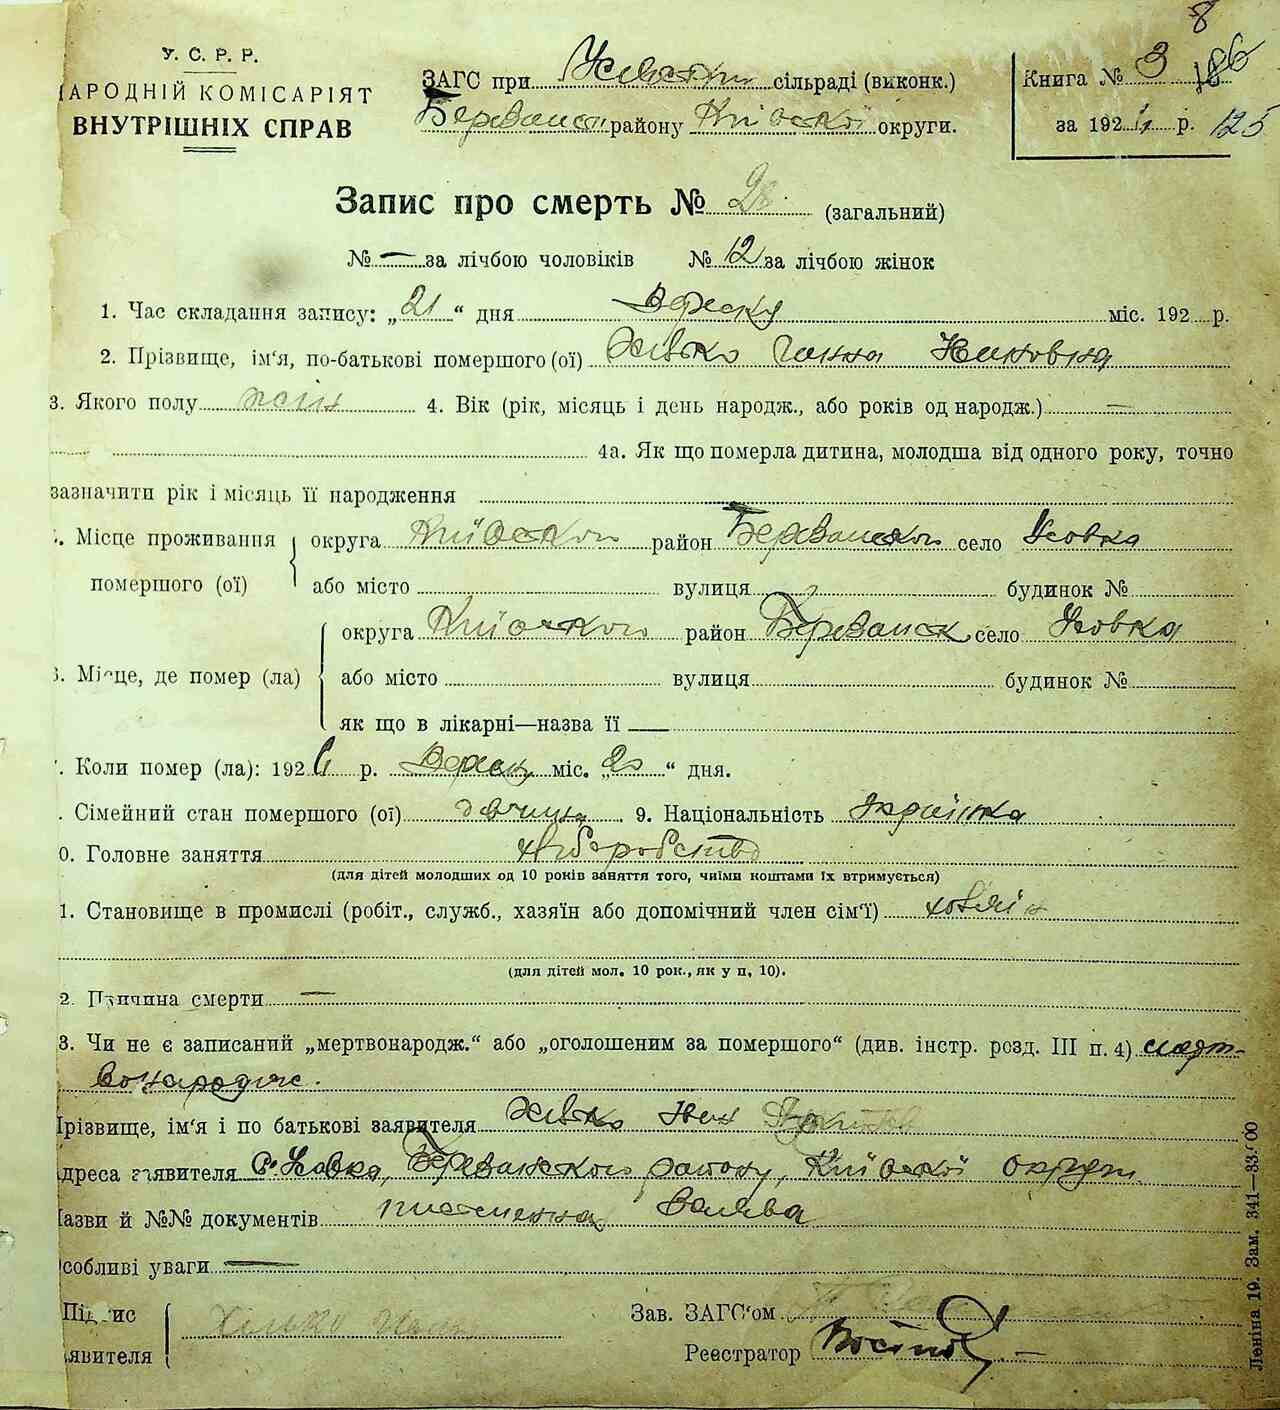 8
У. С. Р. Р.
НАРОДНІЙ КОМІСАРІЯТ
ВНУТРІШНІХ СПРАВ
ЗАГС при сільраді (виконк.)
району Київської округи.
Книга № 3 186
за 192 р. 125
Запис про смерть № 28 (загальний)
№ — за лічбою чоловіків № 12 за лічбою жінок
1. Час складання запису: „21“ дня Вересня міс. 192 р.
2. Прізвище, ім'я, по-батькові помершого (ої) Хівько Ганна
3. Якого полу жін 4. Вік (рік, місяць і день народж., або років од народж.) —
4а. Як що померла дитина, молодша від одного року, точно
зазначити рік і місяць її народження
Місце проживання округа район село Усовка
помершого (ої) або місто вулиця будинок №
округа район село Усовка
Місце, де помер (ла) або місто вулиця будинок №
як що в лікарні—назва її —
Коли помер (ла): 1926 р. міс. „20“ дня.
Сімейний стан помершого (ої) дівчина 9. Національність Українка
0. Головне заняття хліборобство
(для дітей молодших од 10 років заняття того, чиїми коштами їх втримується)
1. Становище в промислі (робіт., служб., хазяїн або допомічний член сім'ї) хазяїн
(для дітей мол. 10 рок., як у п. 10).
2. Причина смерти —
3. Чи не є записаний „мертвонародж.“ або „оголошеним за помершого“ (див. інстр. розд. III п. 4) мерт-
вонародже.
Прізвище, ім'я і по батькові заявителя Хівько
Адреса заявителя с. Усовка, району, Київської округи
Назви й №№ документів письменна заява
Особливі уваги —
Підпис
заявителя
Зав. ЗАГС'ом
Реєстратор
Леніна 19. Зам. 341—33.000